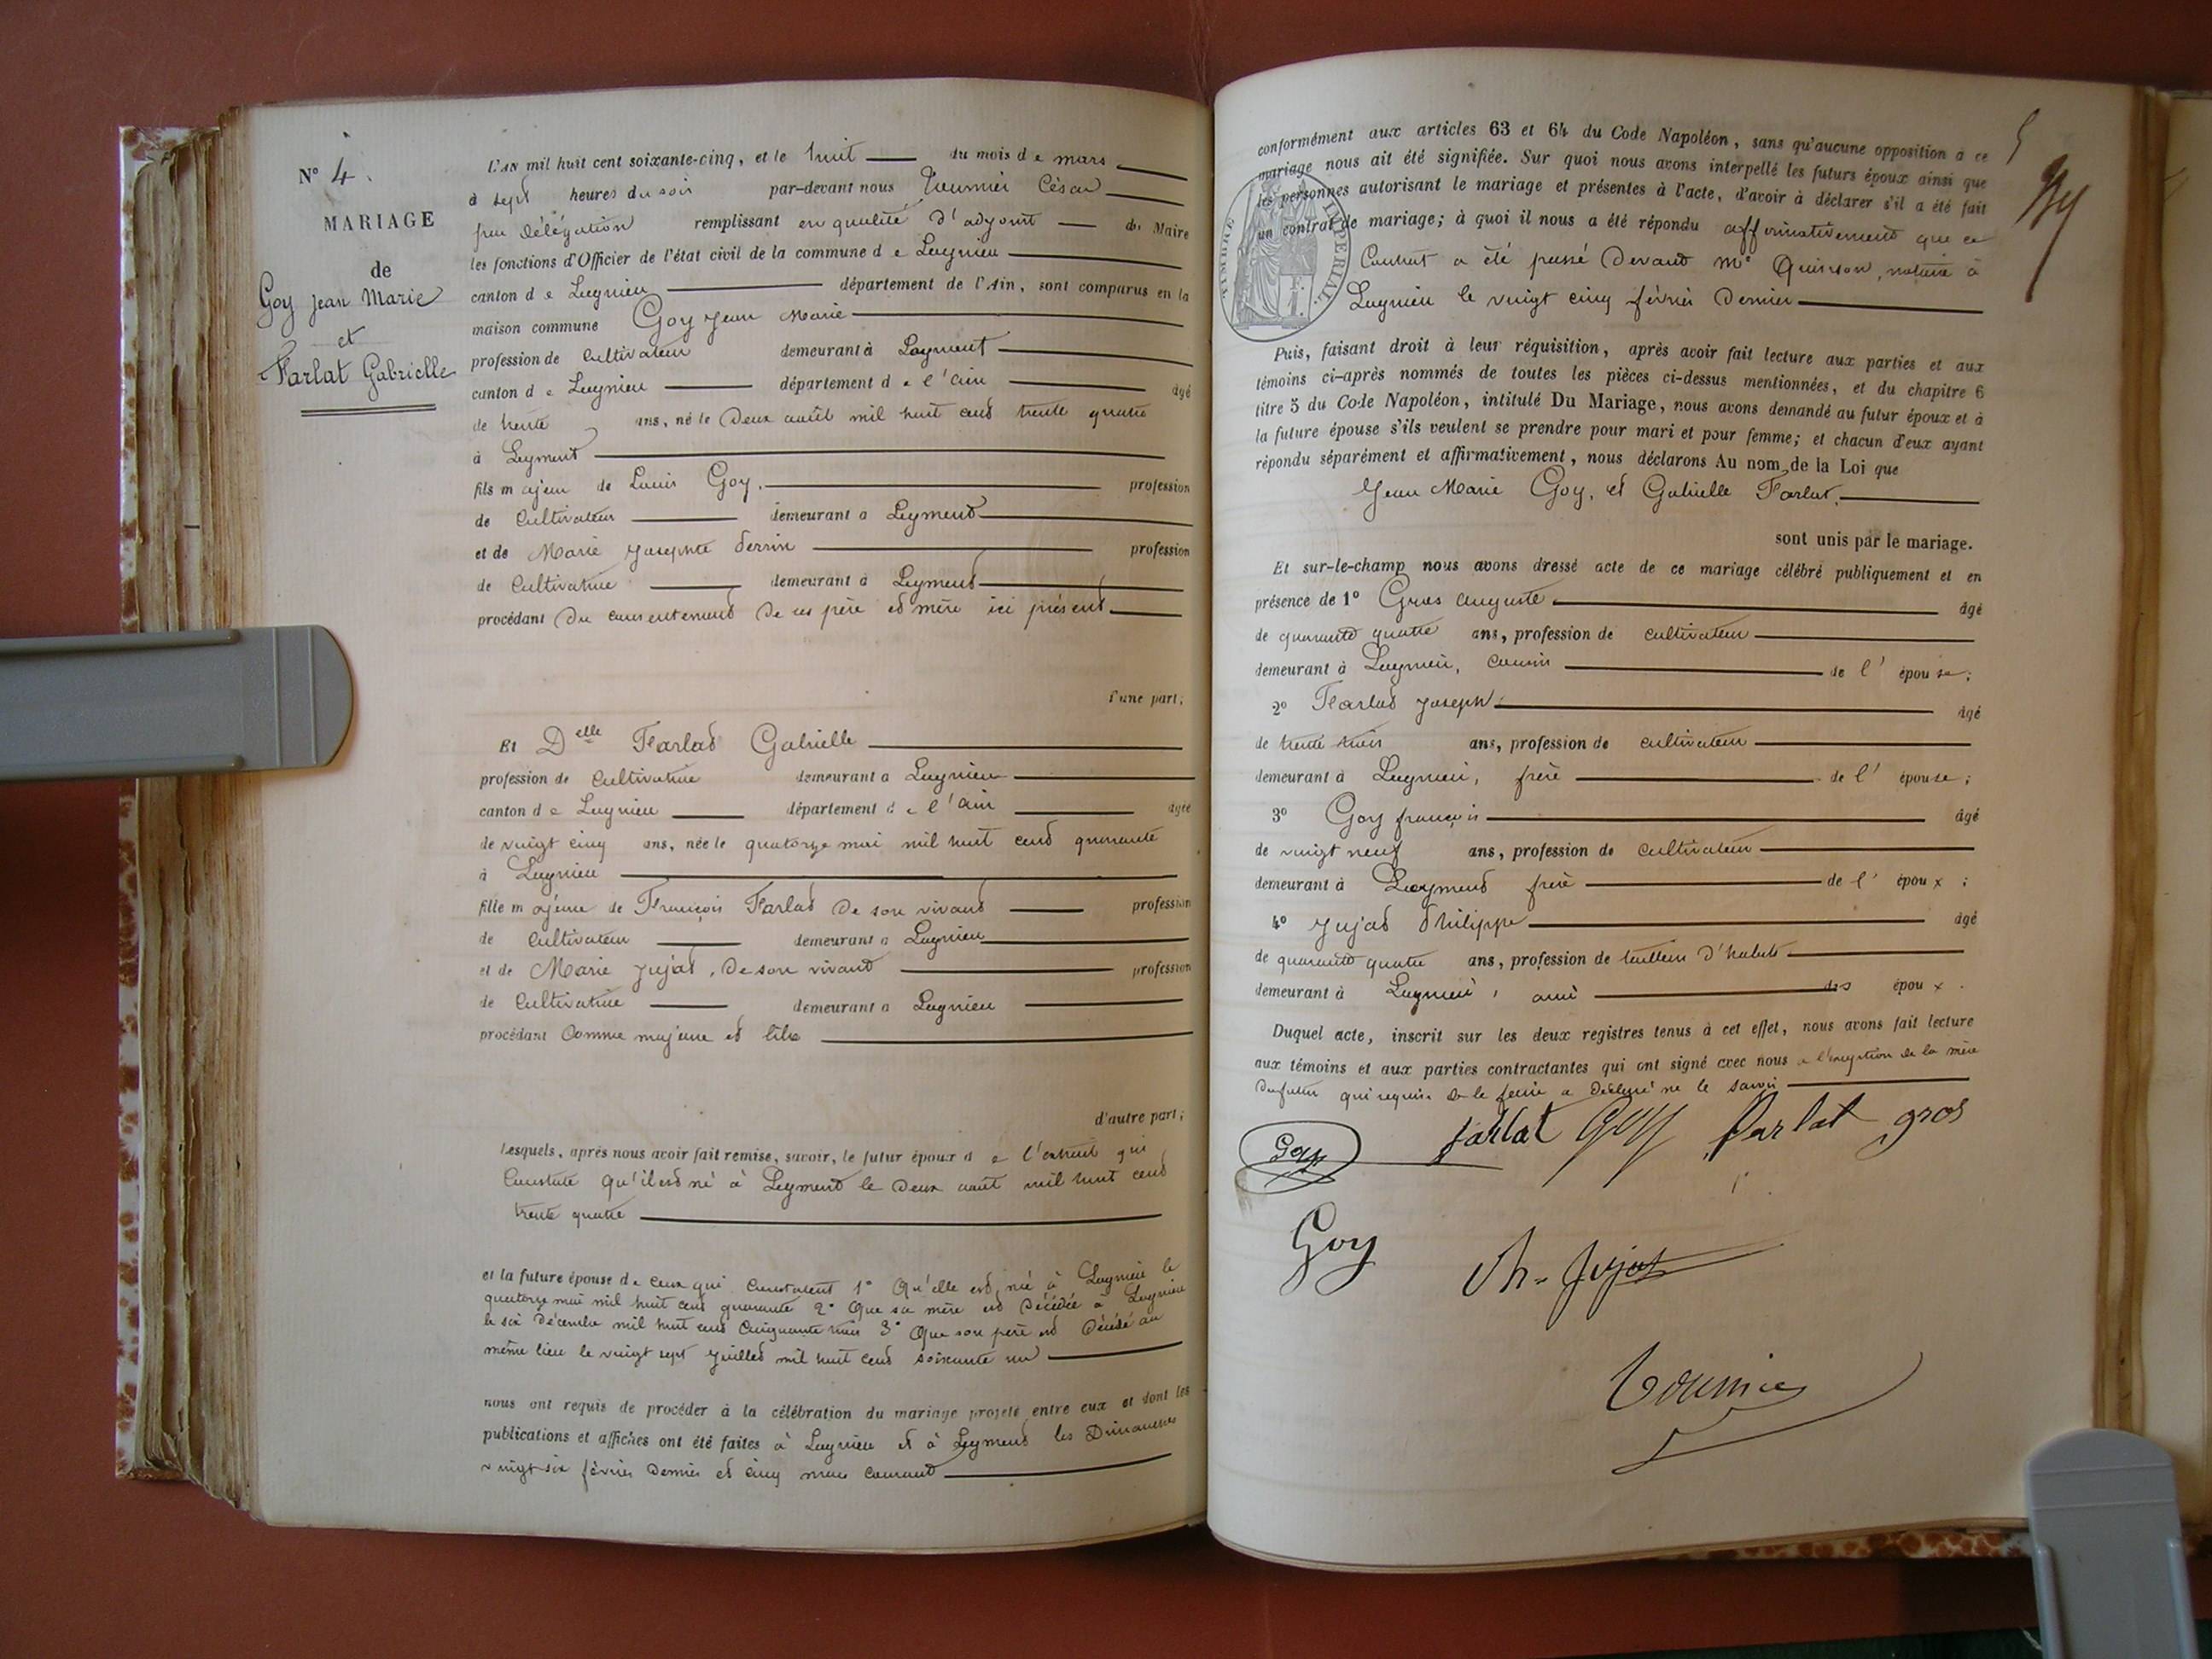 N° 4.
MARIAGE
de
Goy Jean Marie
et
Farlat Gabrielle
L'AN mil huit cent soixante-cinq, et le huit du mois de mars
à sept heures du soir par-devant nous Tournier César
par délégation remplissant en qualité d'adjoint du Maire
les fonctions d'Officier de l'état civil de la commune de Lagnieu
canton de Lagnieu département de l'Ain, sont comparus en la
maison commune Goy Jean Marie
profession de cultivateur demeurant à Leyment
canton de Lagnieu département de l'ain âgé
de trente ans, né le deux août mil huit cent trente quatre
à Leyment
fils majeur de Louis Goy. profession
de cultivateur demeurant à Leyment
et de Marie Josephte Perrin profession
de cultivatrice demeurant à Leyment
procédant du consentement de ses père et mère ici présent
d'une part;
Et Delle Farlat Gabrielle
profession de cultivatrice demeurant à Lagnieu
canton de Lagnieu département de l'ain âgée
de vingt cinq ans, née le quatorze mai mil huit cent quarante
à Lagnieu
fille majeure de François Farlat de son vivant profession
de cultivateur demeurant à Lagnieu
et de Marie Jujat, de son vivant profession
de cultivatrice demeurant à Lagnieu
procédant comme majeure et libre
d'autre part;
Lesquels, après nous avoir fait remise, savoir, le futur époux de l'extrait qui
constate qu'il est né à Leyment le deux août mil huit cent
trente quatre
et la future épouse de ceux qui constatent 1° qu'elle est née à Lagnieu le
quatorze mai mil huit cent quarante 2° que sa mère est décédée à Lagnieu
le six décembre mil huit cent cinquante trois 3° que son père est décédé au
même lieu le vingt sept juillet mil huit cent soixante un
nous ont requis de procéder à la célébration du mariage projeté entre eux et dont les
publications et affiches ont été faites à Lagnieu et à Leyment les Dimanches
vingt six février dernier et cinq mars courant
conformément aux articles 63 et 64 du Code Napoléon, sans qu'aucune opposition à ce
mariage nous ait été signifiée. Sur quoi nous avons interpellé les futurs époux ainsi que
les personnes autorisant le mariage et présentes à l'acte, d'avoir à déclarer s'il a été fait
un contrat de mariage; à quoi il nous a été répondu affirmativement que ce
Contrat a été passé devant Me Quinson, notaire à
Lagnieu le vingt cinq février dernier
TIMBRE IMPERIAL.
Puis, faisant droit à leur réquisition, après avoir fait lecture aux parties et aux
témoins ci-après nommés de toutes les pièces ci-dessus mentionnées, et du chapitre 6
titre 5 du Code Napoléon, intitulé Du Mariage, nous avons demandé au futur époux et à
la future épouse s'ils veulent se prendre pour mari et pour femme; et chacun d'eux ayant
répondu séparément et affirmativement, nous déclarons Au nom de la Loi que
Jean Marie Goy, et Gabrielle Farlat.
sont unis par le mariage.
Et sur-le-champ nous avons dressé acte de ce mariage célébré publiquement et en
présence de 1° Gros Auguste âgé
de quarante quatre ans, profession de cultivateur
demeurant à Lagnieu, cousin de l'épouse;
2° Farlat Joseph âgé
de trente trois ans, profession de cultivateur
demeurant à Lagnieu, frère de l'épouse;
3° Goy françois âgé
de vingt neuf ans, profession de cultivateur
demeurant à Leyment frère de l'époux;
4° Jujat Philippe âgé
de quarante quatre ans, profession de tailleur d'habits
demeurant à Lagnieu, ami des époux.
Duquel acte, inscrit sur les deux registres tenus à cet effet, nous avons fait lecture
aux témoins et aux parties contractantes qui ont signé avec nous a l'exception de la mère
du futur qui requise de le faire a déclaré ne le savoir
Goy farlat Goy farlat gros
Goy Ph. Jujat
Tournier